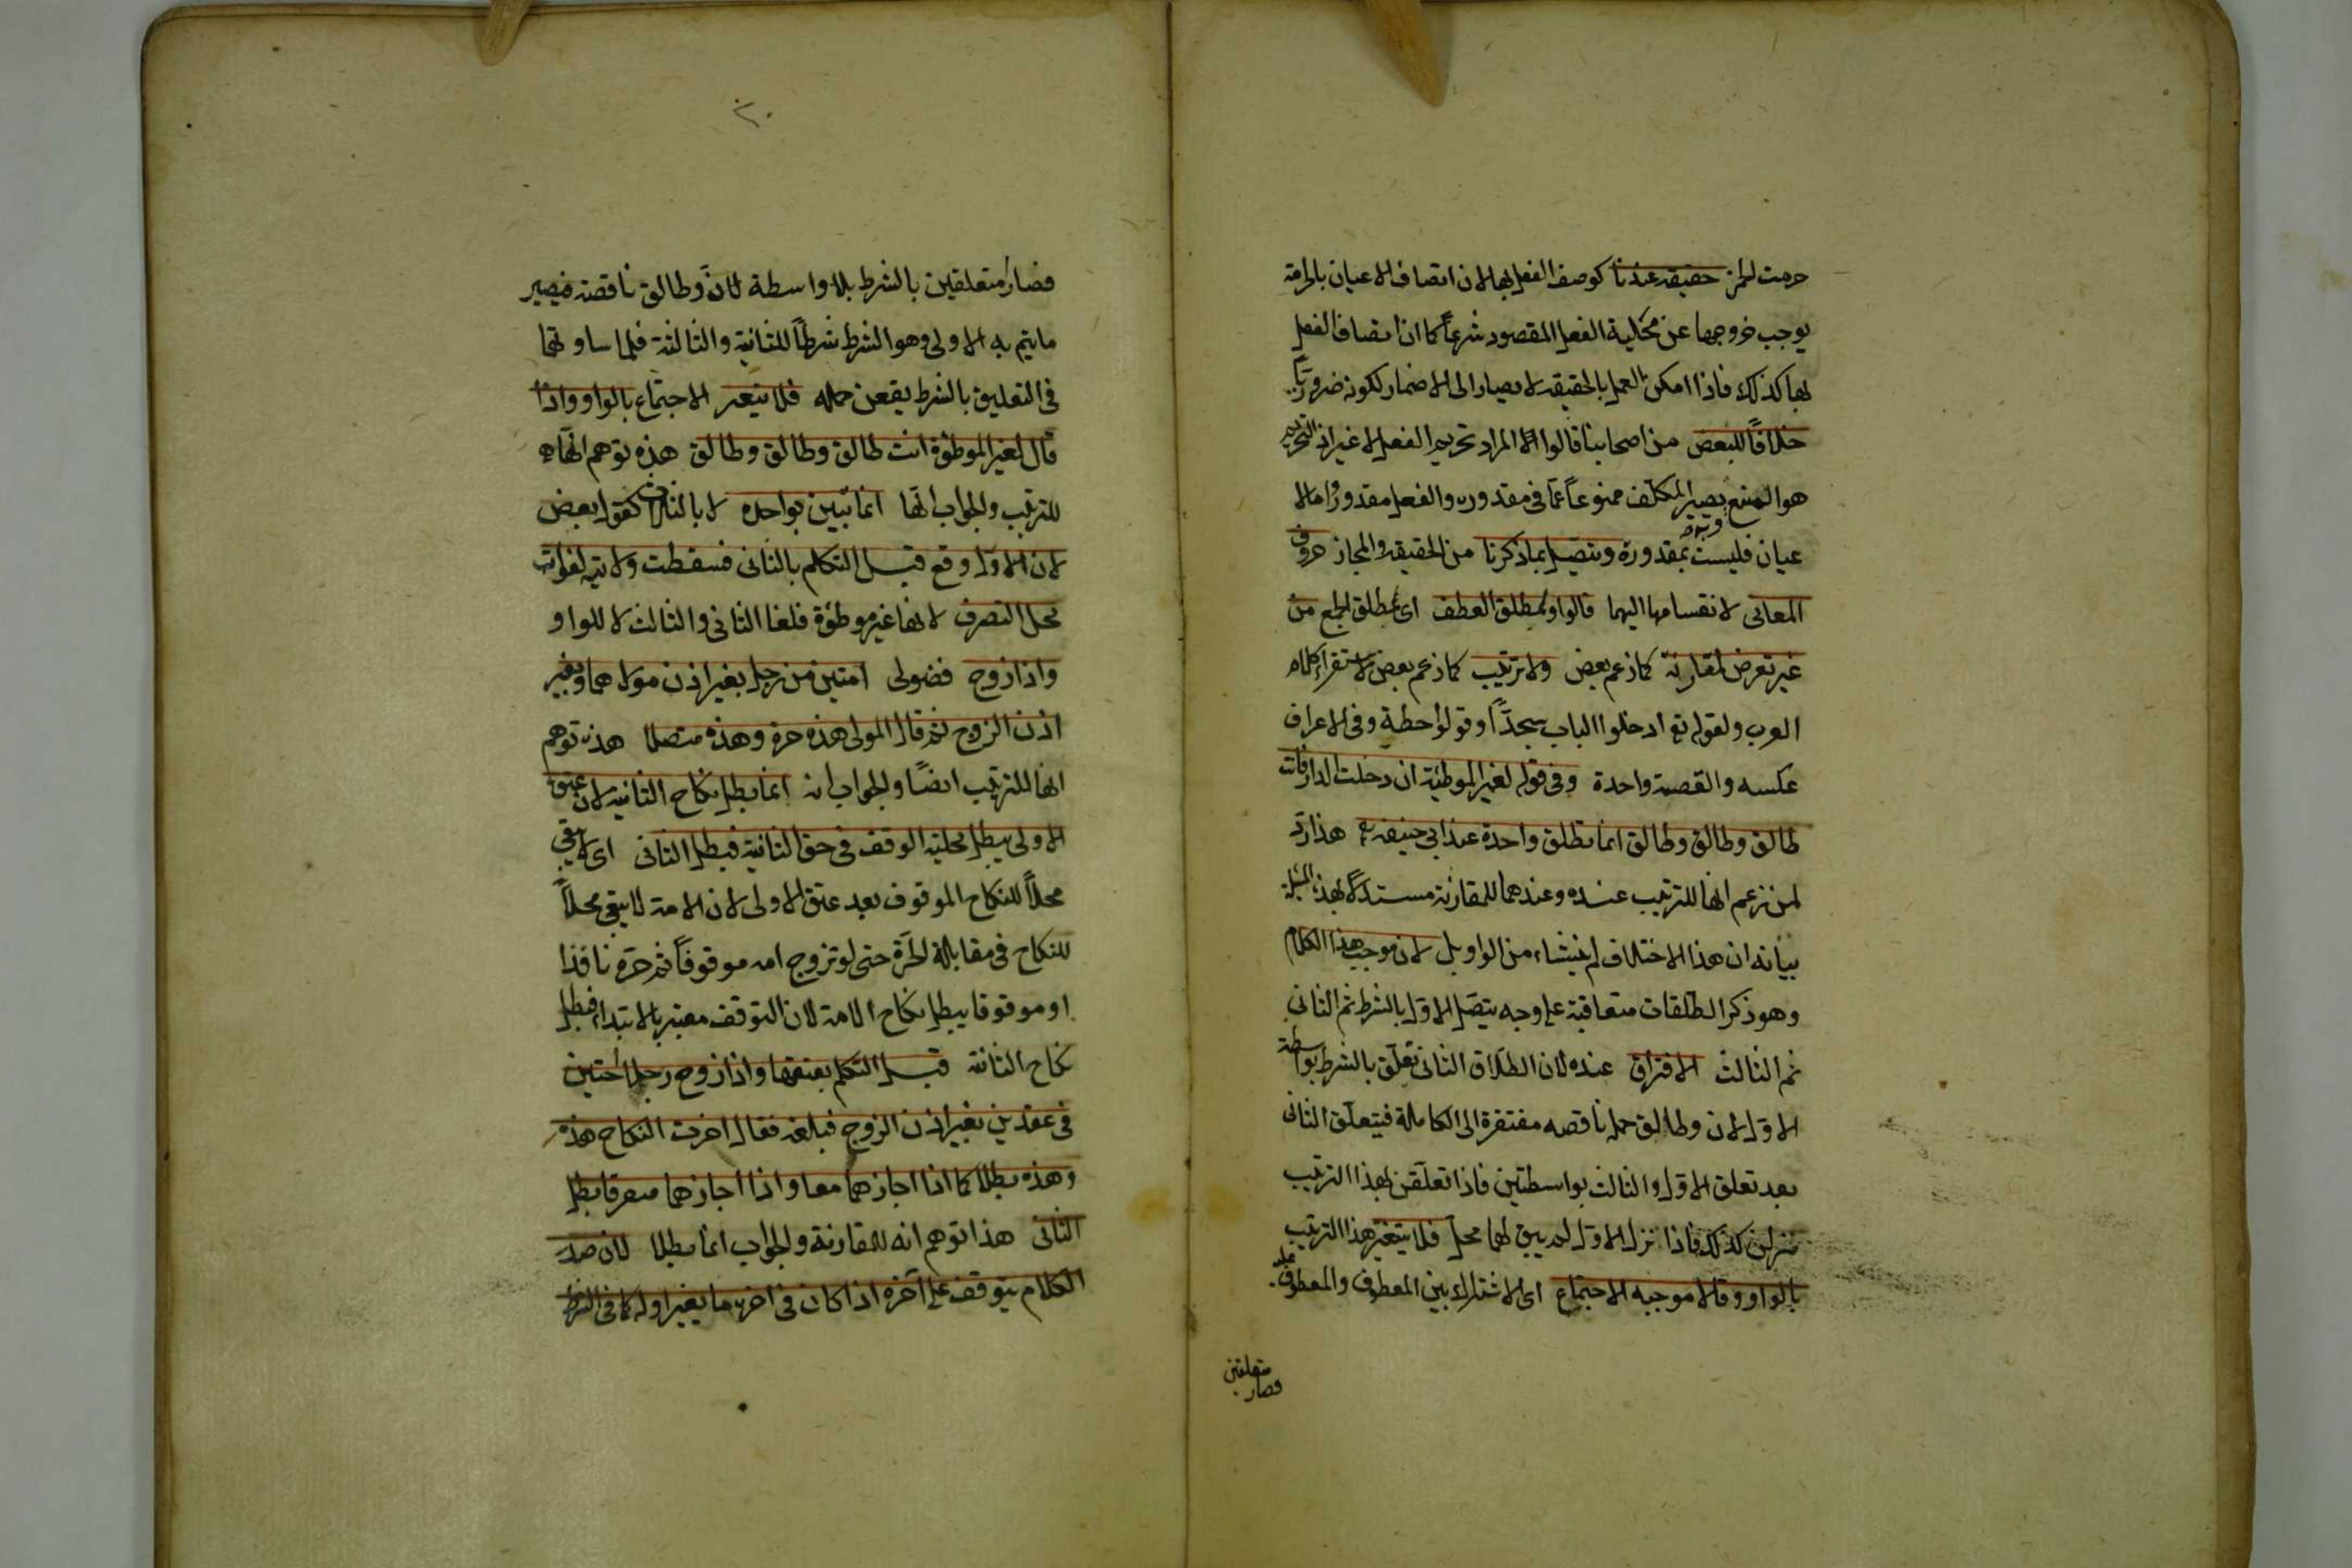 حرمت الخمر حقيقة عندنا كوصف الفعل بها لان اتصاف الاعيان بالحرمة
يوجب خروجها عن محلية الفعل المقصود شرعاً كما ان اتصاف الفعل
بها كذلك فاذا امكن العمل بالحقيقة لا يصار الى الاضمار لكونه ضرورياً
خلافاً للبعض من اصحابنا قالوا المراد تحريم الفعل لا غير اذ التحريم
هو المنع يصير المكلف ممنوعاً عما فى مقدوره والفعل مقدور واما الا
عيان فليست بمقدورة ويتصل بما ذكرنا من الحقيقة والمجاز حروف
المعانى لانقسامها اليهما فالواو لمطلق العطف اى لمطلق الجمع من
غير تعرض لمقارنة كما زعم بعض ولا ترتيب كما زعم بعض لاستقراء كلام
العرب ولقوله تع ادخلوا الباب سجداً وقولوا حطة وفى الاعراف
عكسه والقصة واحدة وفى قوله لغير الموطئة ان دخلت الدار فانت
طالق وطالق وطالق انما تطلق واحدة عند ابى حنيفة هذا رد
لمن زعم انها للترتيب عنده وعندهما للمقارنة مستدلاً بهذا المسئلة
بيانه ان هذا الاختلاف لم ينشاء من الواو بل لان موجب هذا الكلام
وهو ذكر الطلقات متعاقبة على وجه يتصل الاول بالشرط ثم الثانى
ثم الثالث الافتراق عنده لان الطلاق الثانى تعلق بالشرط بواسطة
الاول لان وطالق جملة ناقصه مفتقرة الى الكاملة فيتعلق الثانى
بعد تعلق الاول والثالث بواسطتين فاذا تعلقن بهذا الترتيب
ينزلن كذلك فاذا نزل الاول لم يبق لهما محل فلا يتغير هذا الترتيب
بالواو وقالا موجبه الاجتماع اى الاشتراك بين المعطوف والمعطوف عليه
فصار متعلقين
٣٠
فصار متعلقين بالشرط بلا واسطة لان وطالق ناقصة فيصير
ما يتم به الاولى وهو الشرط شرطاً للثانية والثالثة فلما ساوتها
فى التعليق بالشرط يقعن جملة فلا يتغير الاجتماع بالواو واذا
قال لغير الموطؤة انت طالق وطالق وطالق هذه توهم انها
للترتيب والجواب انها انما تبين بواحده لا بالثلاث كقول بعض
لان الاول وقع قبل التكلم بالثانى فسقطت ولايته لفوات
محل التصرف لانها غير موطؤة فلغا الثانى والثالث لا للواو
واذا زوج فضولى امتين من رجل بغير اذن مولاهما وبغير
اذن الزوج ثم قال المولى هذه حرة وهذه متصلا هذه توهم
انها للترتيب ايضاً والجواب انه انما يبطل نكاح الثانية لان عتق
الاولى يبطل محلية الوقف فى حق الثانية فبطل الثانى اى لا يبقى
محلاً للنكاح الموقوف بعد عتق الاولى لان الامة لا يبقى محلاً
للنكاح فى مقابلة الحرة حتى لو تزوج امه موقوفاً ثم حرة نافذا
او موقوفا يبطل نكاح الامة لان التوقف معتبر بالابتداء فبطل
نكاح الثانية قبل التكلم بعتقها واذا زوج رجلا اختين
فى عقدين بغير اذن الزوج فبلغه فقال اخرت النكاح هذه
وهذه بطلا كما اذا اجازهما معا واذا اجازهما متفرقا بطل
الثانى هذا توهم انه للمقارنة والجواب انما بطلا لان صدر
الكلام يتوقف على آخره اذا كان فى اخره ما يغير اوله كما فى الشرط